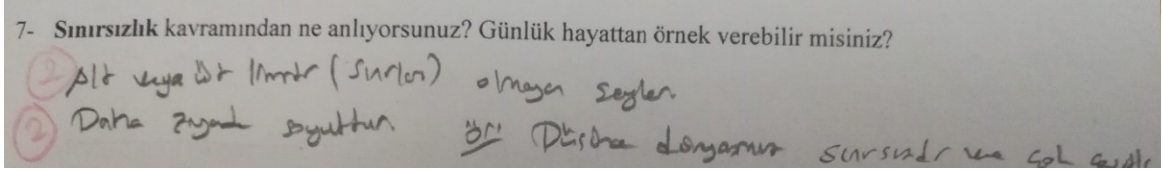 7- Sınırsızlık kavramından ne anlıyorsunuz? Günlük hayattan örnek verebilir misiniz?
2 Alt veya üst limitr (sınırları) olmayan şeyler.
2 Daha ziyade soyuttur. ör: Düşünce dünyamız sınırsızdr ve çok